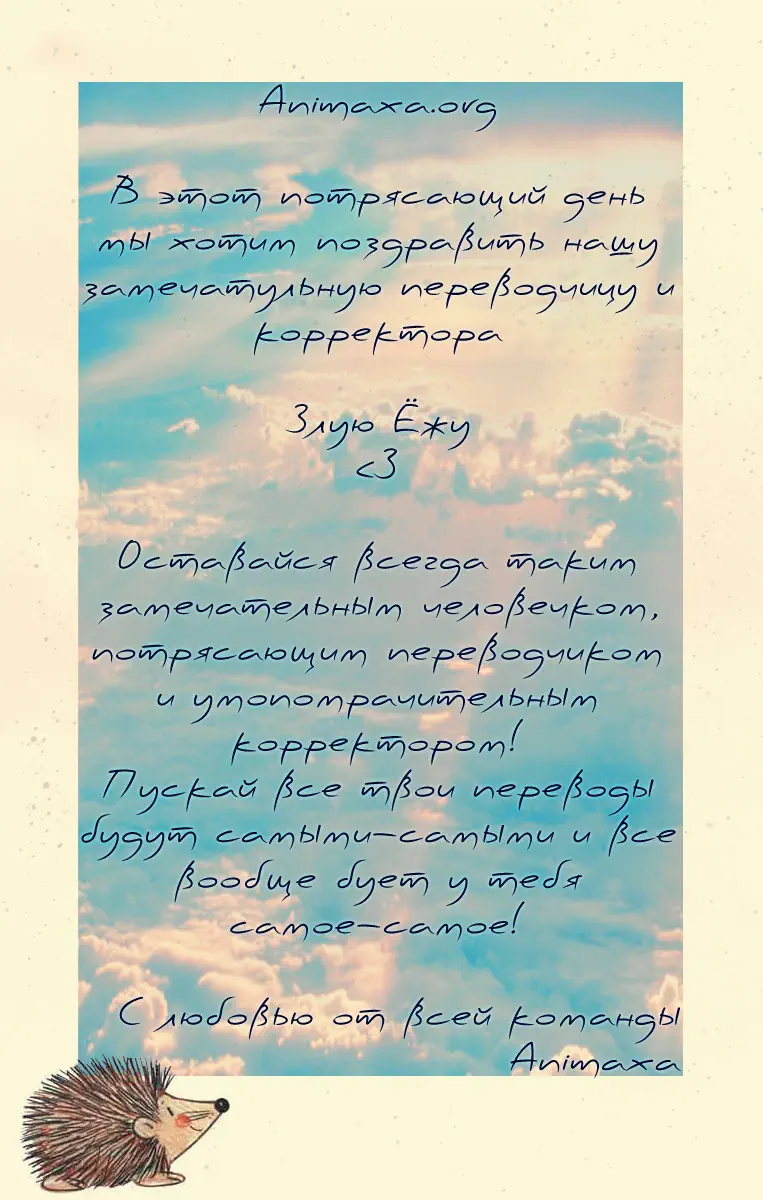 Animaxa.org
В этот потрясающий день
мы хотим поздравить нашу
замечатульную переводчицу и
корректора
Злую Ёжу
<3
Оставайся всегда таким
замечательным человечком,
потрясающим переводчиком
и умопомрачительным
корректором!
Пускай все твои переводы
будут самыми-самыми и все
вообще бует у тебя
самое-самое!
С любовью от всей команды
Animaxa